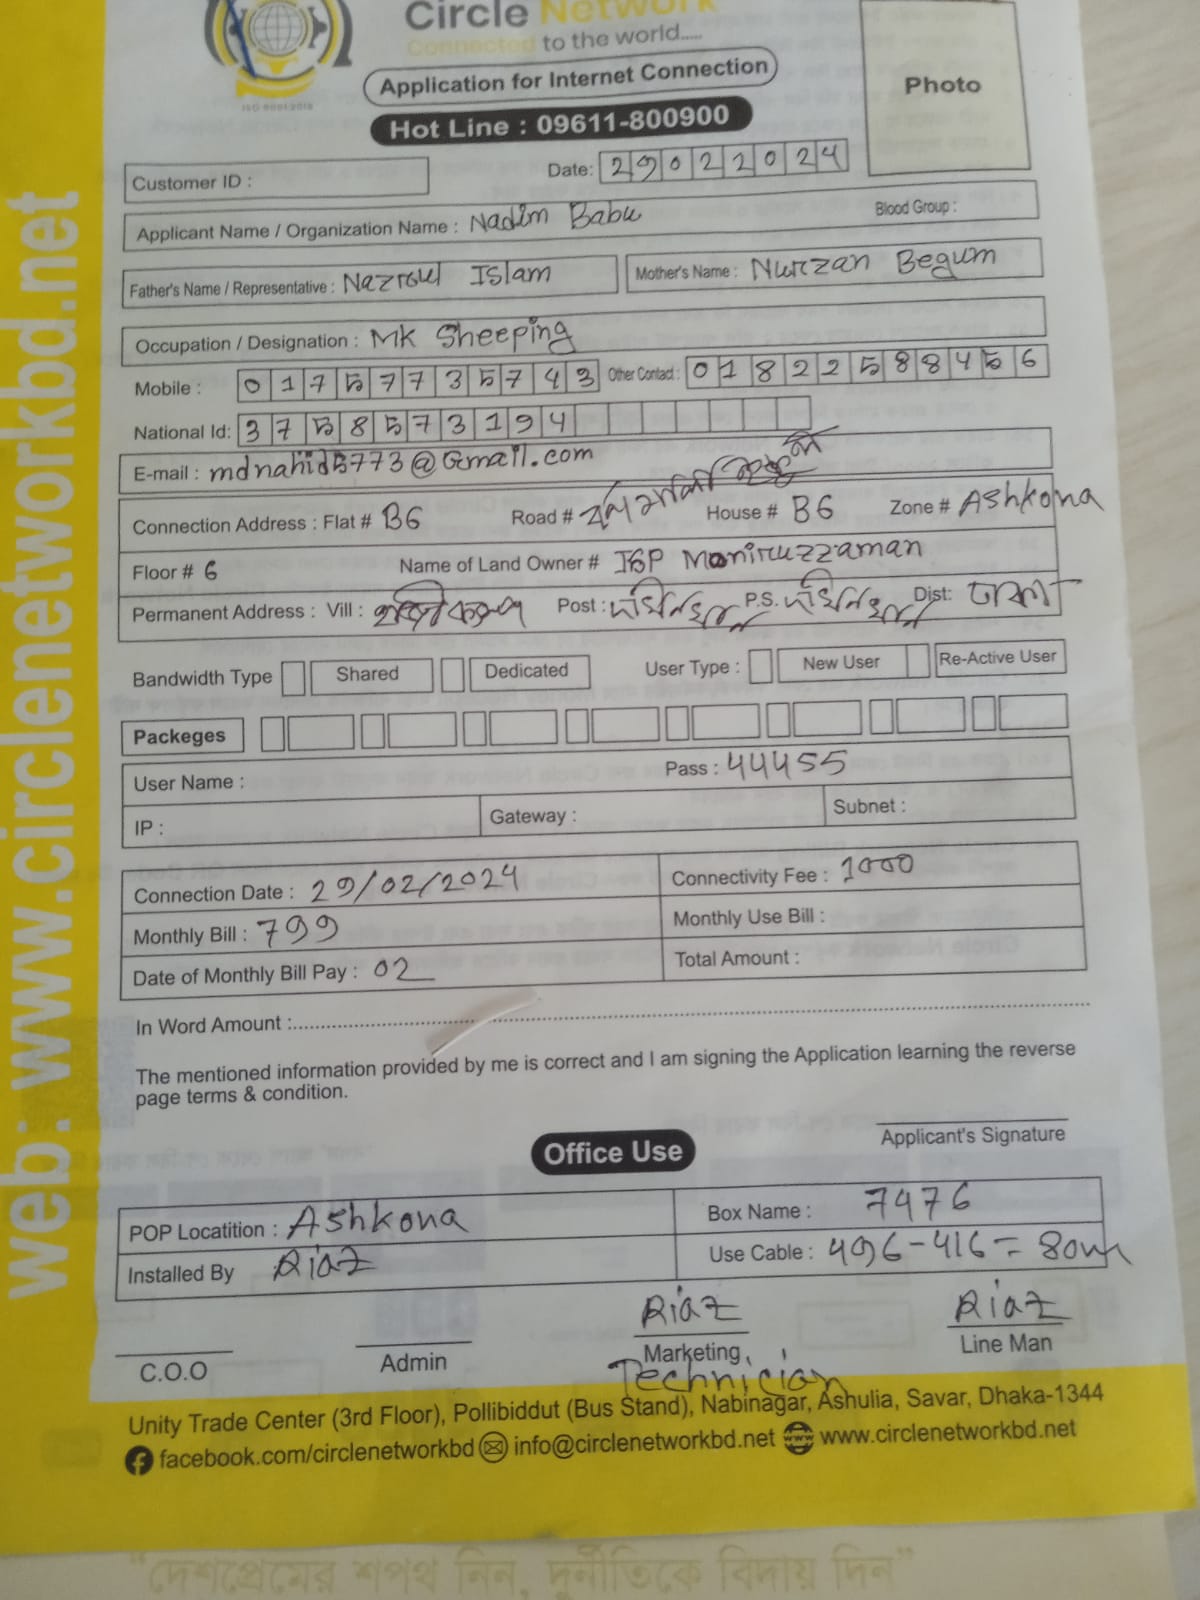 Circle Network
Connected to the world.....
ISO 9001:2015
Application for Internet Connection
Photo
Hot Line : 09611-800900
Customer ID :
Date: 29022024
Applicant Name / Organization Name : Nadim Babu
Blood Group :
Father's Name / Representative : Nazrul Islam
Mother's Name : Nurzan Begum
Occupation / Designation : MK Sheeping
Mobile : 01757735743
Other Contact : 01822588456
National Id: 3758573194
E-mail : mdnahid5773@Gmail.com
Connection Address : Flat # B6 Road # House # B6 Zone # Ashkona
Floor # 6 Name of Land Owner # IGP Moniruzzaman
Permanent Address : Vill : Post : P.S. Dist: ঢাকা
Bandwidth Type Shared Dedicated User Type : New User Re-Active User
Packeges
User Name : Pass : 44455
IP : Gateway : Subnet :
Connection Date : 29/02/2024 Connectivity Fee : 1000
Monthly Bill : 799 Monthly Use Bill :
Date of Monthly Bill Pay : 02 Total Amount :
In Word Amount :
The mentioned information provided by me is correct and I am signing the Application learning the reverse
page terms & condition.
Applicant's Signature
Office Use
POP Locatition : Ashkona Box Name : 7476
Installed By Riaz Use Cable : 496-416= 80m
Riaz Riaz
C.O.O Admin Marketing, Line Man
Technician
Unity Trade Center (3rd Floor), Pollibiddut (Bus Stand), Nabinagar, Ashulia, Savar, Dhaka-1344
facebook.com/circlenetworkbd info@circlenetworkbd.net www.circlenetworkbd.net
web: www.circlenetworkbd.net
"দেশপ্রেমের শপথ নিন, দুর্নীতিকে বিদায় দিন"